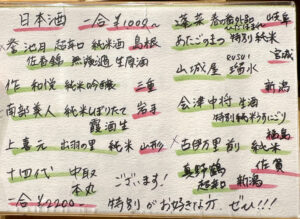 日本酒 一合 ¥1000〜
巻 池月 超辛口 純米酒 島根
佐香錦 無濾過 生原酒
作 和悦 純米吟醸 三重
南部美人 純米しぼりたて 岩手
生
上喜元 出羽の里 純米 山形
十四代 中取
本丸
一合 ¥2200〜
ございます!
蓬莱 岐阜
あたごのまつ 特別純米
宮城
山城屋
新潟
会津中将 生酒
特別純米 にごり
福島
古伊万里 前 純米
佐賀
真野鶴
超辛口 新潟
特別がお好きな方、ぜひ!!!